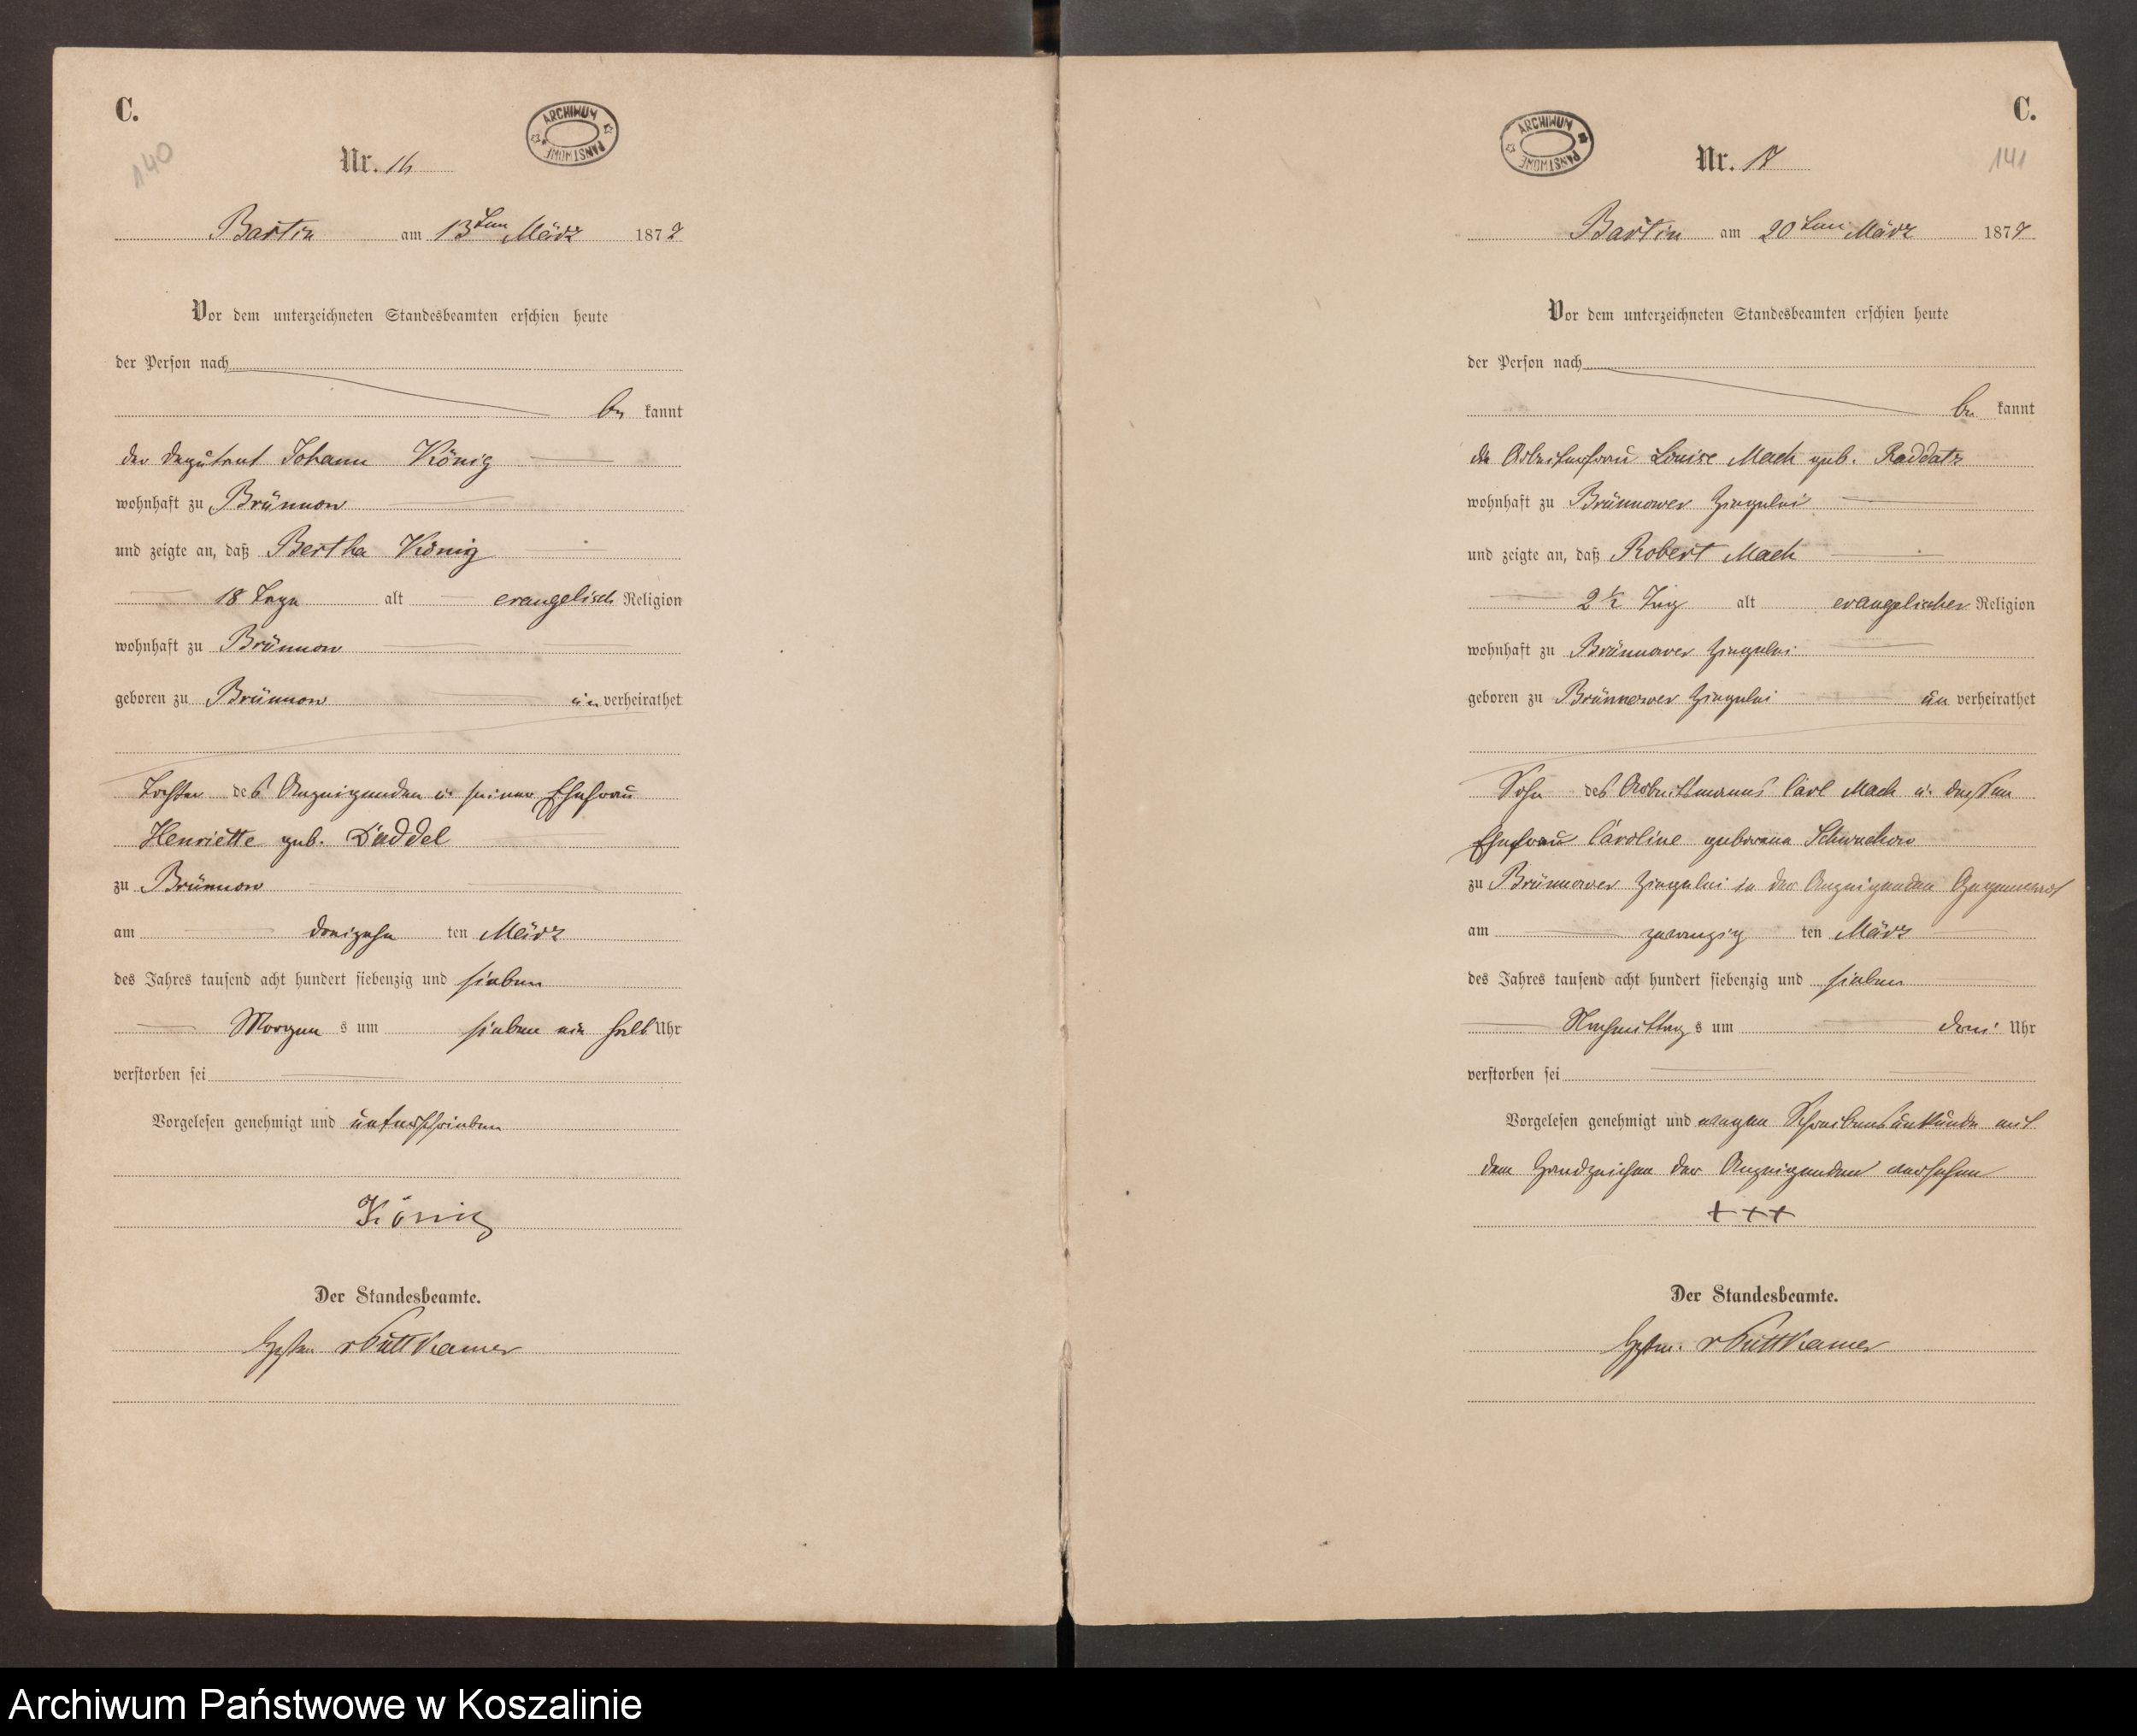 C.
140
ARCHIWUM PAŃSTWOWE
Nr. 16
Bartin am 13ten März 1877
Vor dem unterzeichneten Standesbeamten erschien heute
der Person nach
be kannt
der Deputant Johann König
wohnhaft zu Brünnow
und zeigte an, daß Bertha König
18 Tage alt evangelisch Religion
wohnhaft zu Brünnow
geboren zu Brünnow un verheirathet
Tochter des Anzeigenden u. seiner Ehefrau
Henriette geb. Daddel
zu Brünnow
am dreizehn ten März
des Jahres tausend acht hundert siebenzig und sieben
Morgen s um sieben ein halb Uhr
verstorben sei
Vorgelesen genehmigt und unterschrieben
König
Der Standesbeamte.
v Puttkamer
C.
141
ARCHIWUM PAŃSTWOWE
Nr. 17
Bartin am 20ten März 1877
Vor dem unterzeichneten Standesbeamten erschien heute
der Person nach
be kannt
die Arbeiterfrau Louise Mach geb. Raddatz
wohnhaft zu Brünnower Ziegelei
und zeigte an, daß Robert Mach
2 1/2 Tag alt evangelischer Religion
wohnhaft zu Brünnower Ziegelei
geboren zu Brünnower Ziegelei un verheirathet
Sohn des Arbeitsmanns Carl Mach u. dessen
Ehefrau Caroline geborene Schwuchow
zu Brünnower Ziegelei in der Anzeigenden Gegenwart
am zwanzig ten März
des Jahres tausend acht hundert siebenzig und sieben
Nachmittag s um drei Uhr
verstorben sei
Vorgelesen genehmigt und wegen Schreibensunkunde mit
dem Handzeichen der Anzeigenden versehen
+++
Der Standesbeamte.
v Puttkamer
Archiwum Państwowe w Koszalinie